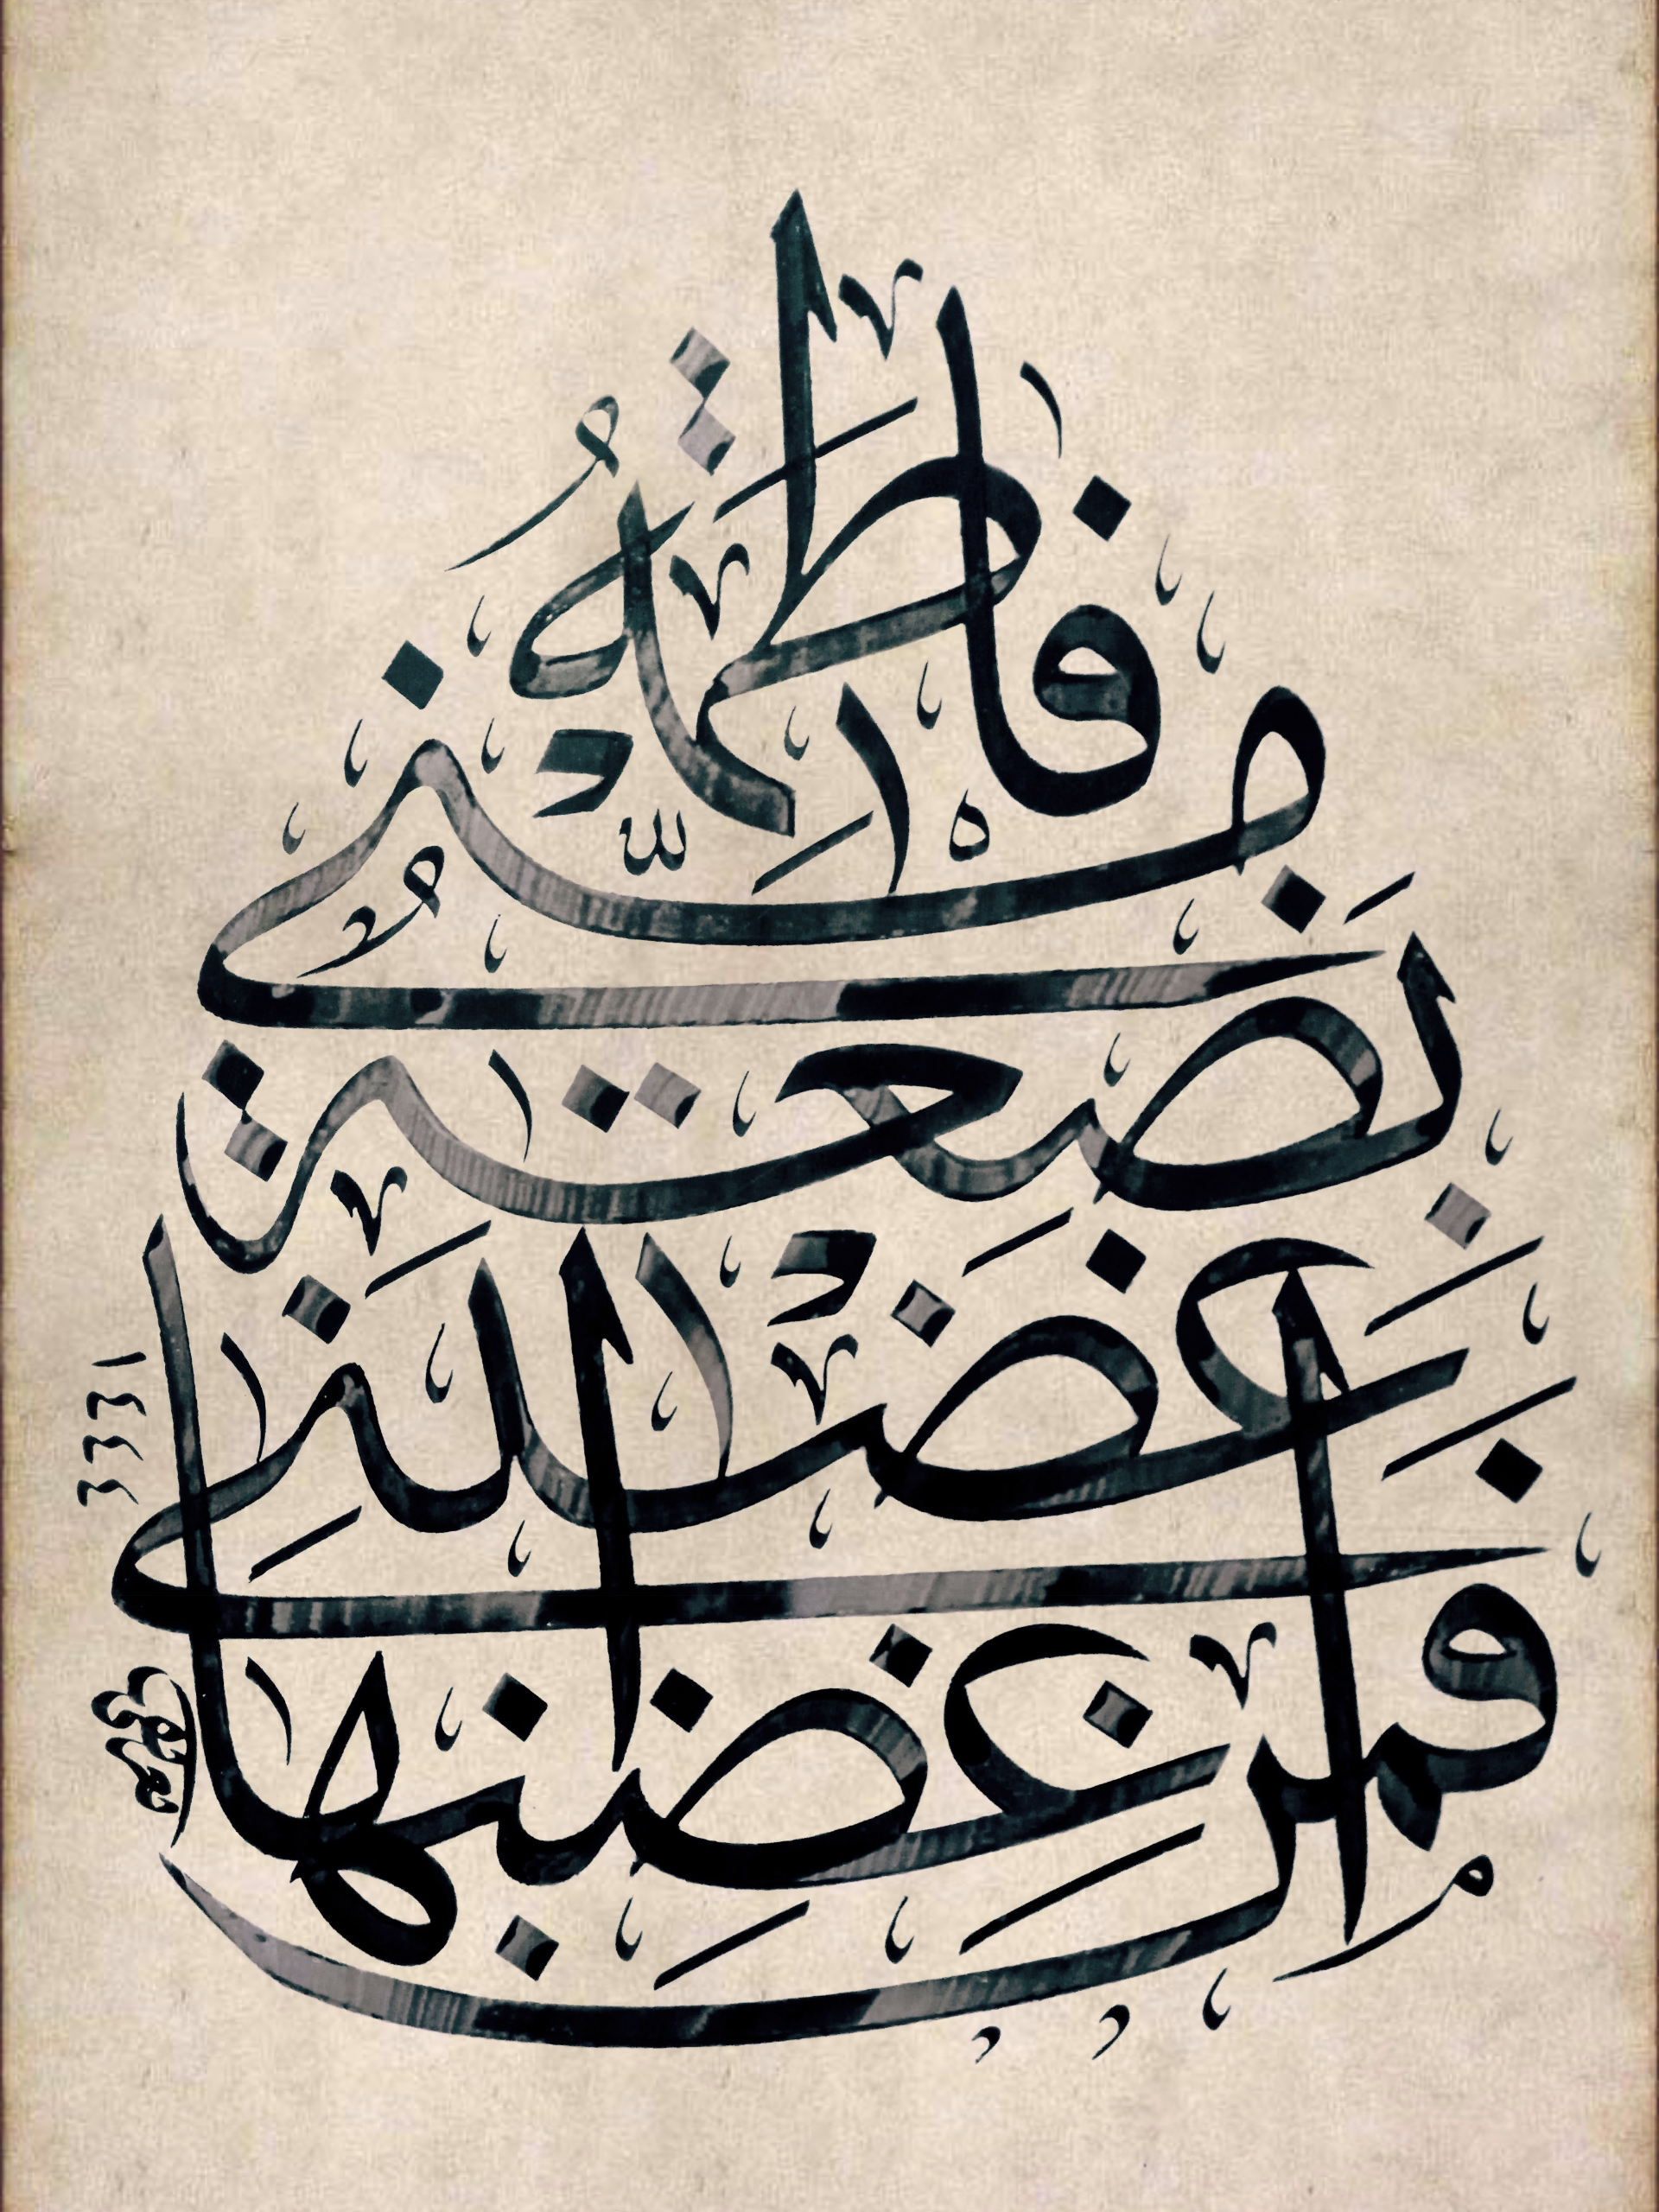 فاطمة
بضعة مني
فمن اغضبها
اغضبني